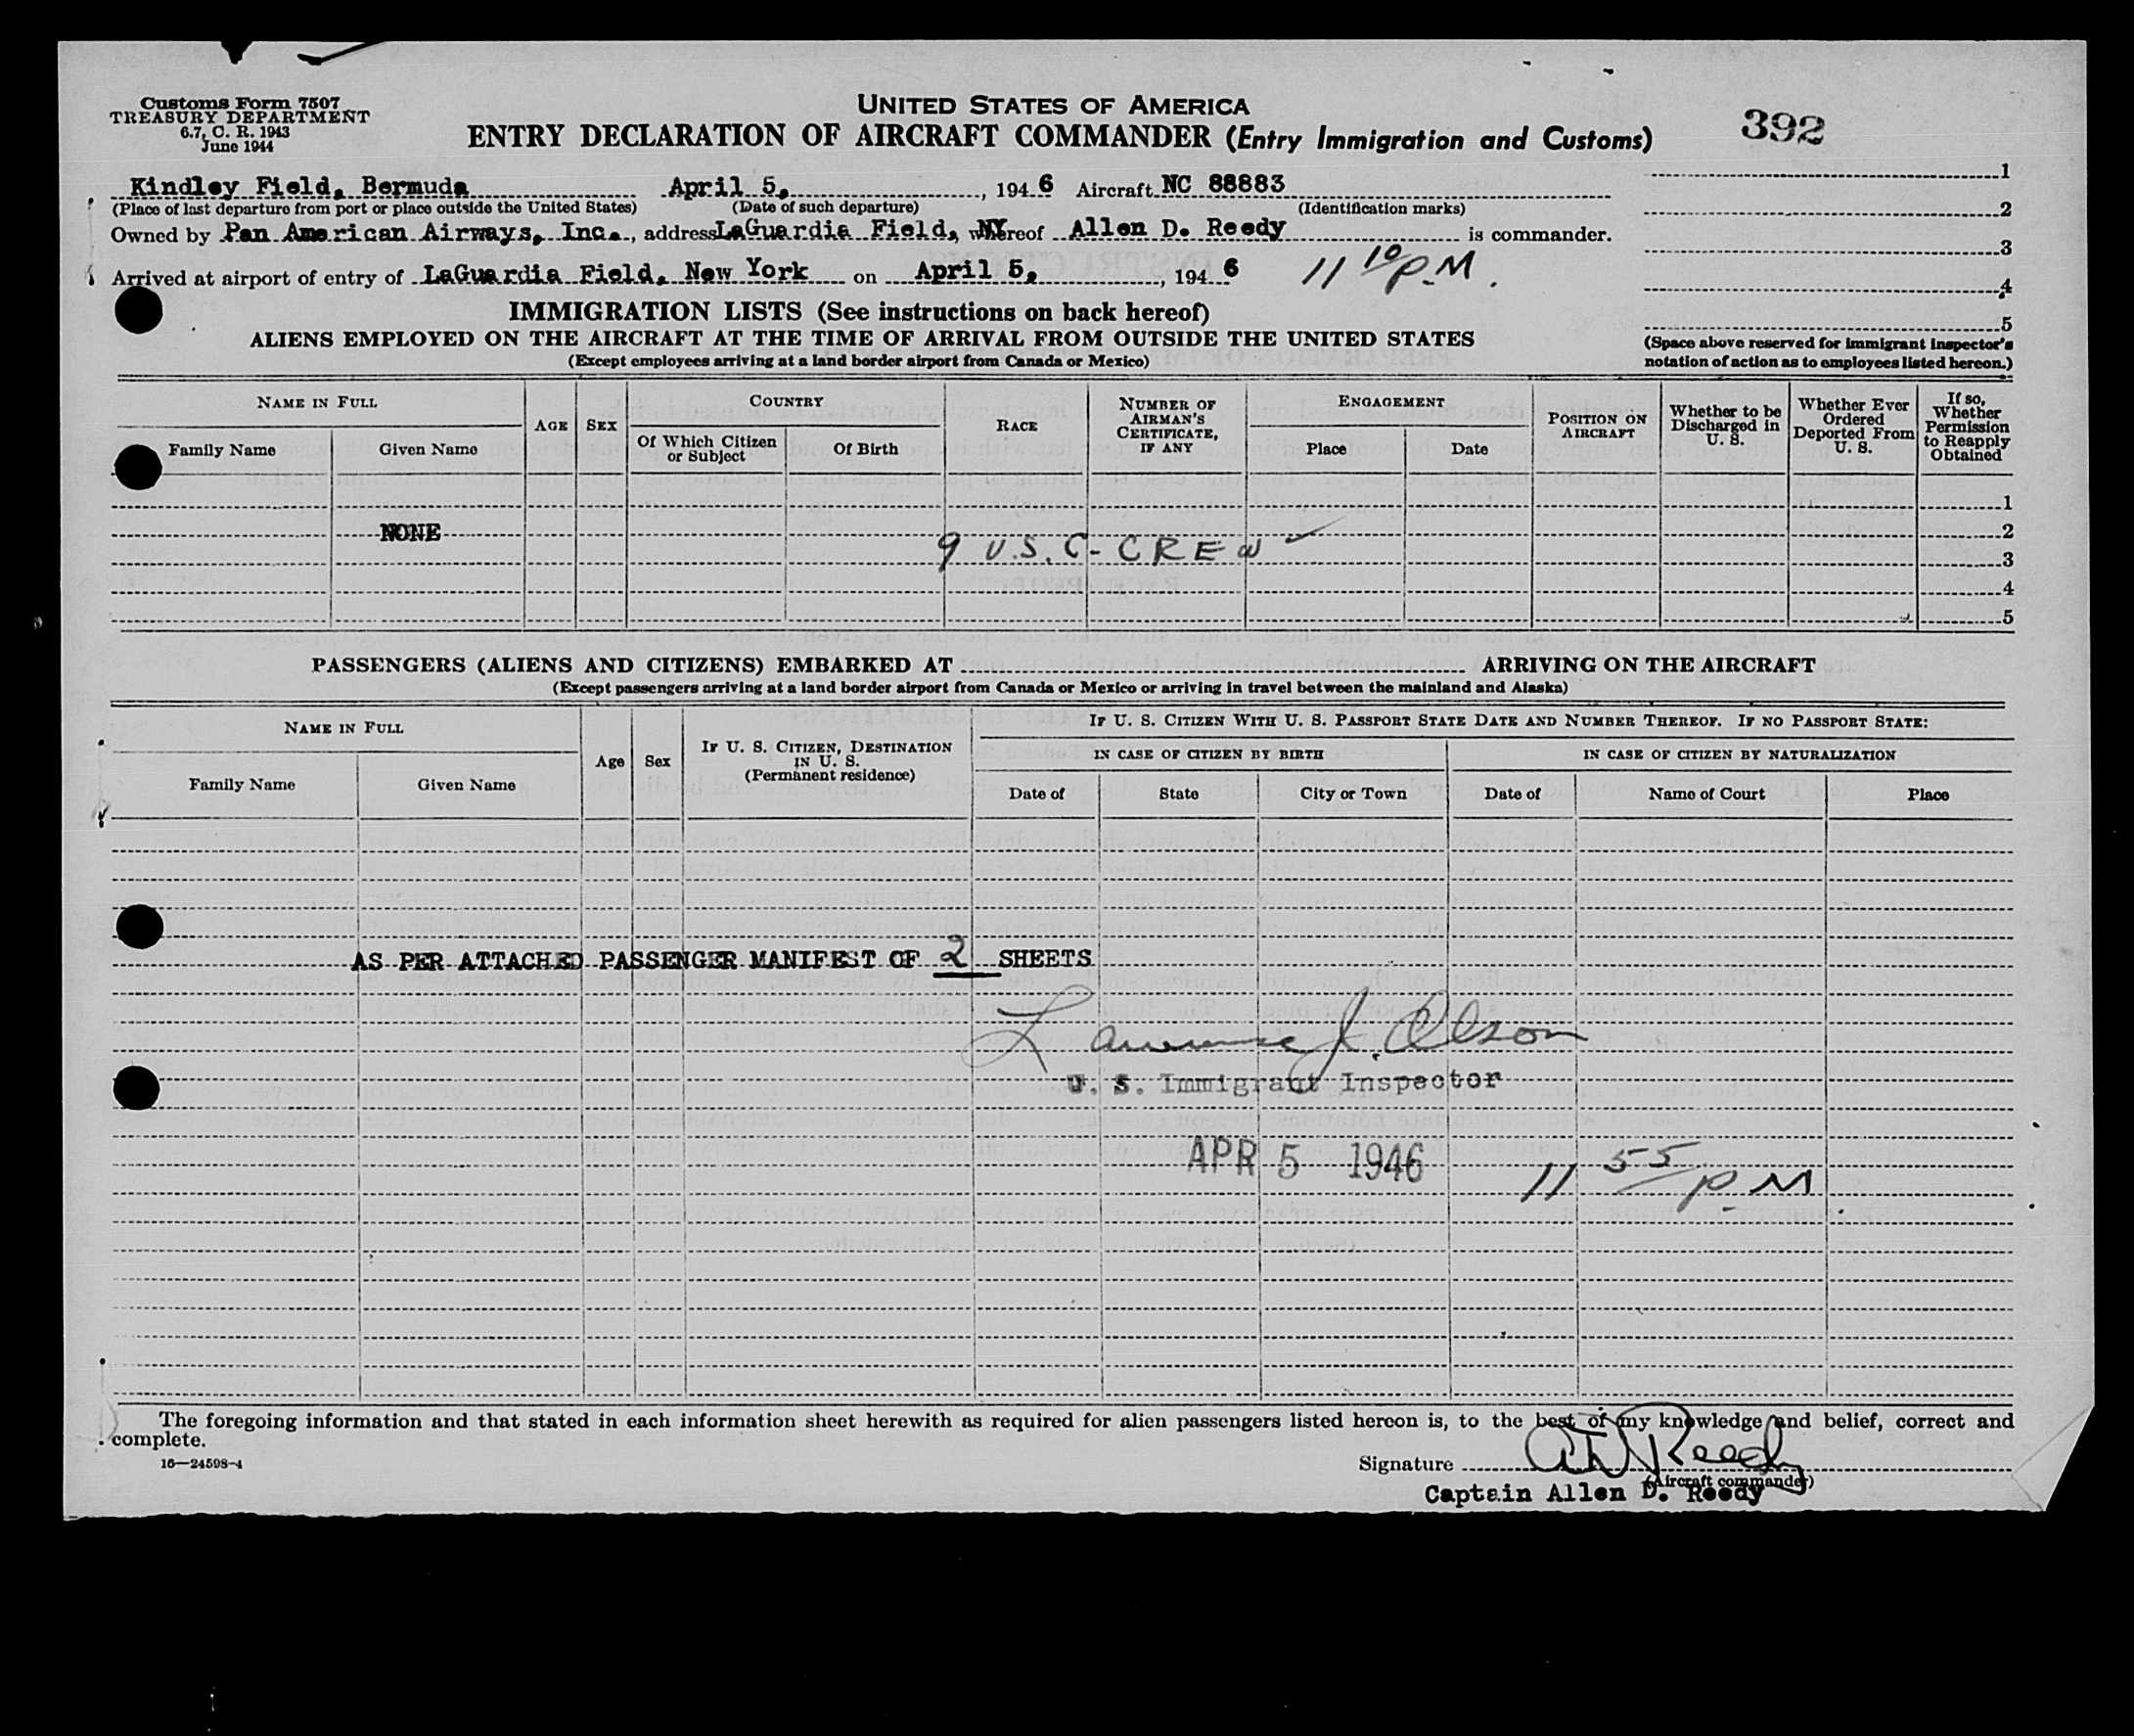 Customs Form 7507
TREASURY DEPARTMENT
6.7, C. R. 1943
June 1944
UNITED STATES OF AMERICA
ENTRY DECLARATION OF AIRCRAFT COMMANDER (Entry Immigration and Customs)
392
Kindley Field, Bermuda April 5, , 194 6 Aircraft NC 88883
(Place of last departure from port or place outside the United States) (Date of such departure) (Identification marks)
Owned by Pan American Airways, Inc. , address LaGuardia Field, NY whereof Allen D. Reedy is commander.
Arrived at airport of entry of LaGuardia Field, New York on April 5, , 194 6 11 10 P.M.
1
2
3
4
5
(Space above reserved for immigrant inspector's
notation of action as to employees listed hereon.)
IMMIGRATION LISTS (See instructions on back hereof)
ALIENS EMPLOYED ON THE AIRCRAFT AT THE TIME OF ARRIVAL FROM OUTSIDE THE UNITED STATES
(Except employees arriving at a land border airport from Canada or Mexico)
NAME IN FULL
Family Name Given Name
AGE
SEX
COUNTRY
Of Which Citizen
or Subject
Of Birth
RACE
NUMBER OF
AIRMAN'S
CERTIFICATE,
IF ANY
ENGAGEMENT
Place Date
POSITION ON
AIRCRAFT
Whether to be
Discharged in
U. S.
Whether Ever
Ordered
Deported From
U. S.
If so,
Whether
Permission
to Reapply
Obtained
1
NONE 2
9 U.S.C-CREW
3
4
5
PASSENGERS (ALIENS AND CITIZENS) EMBARKED AT ARRIVING ON THE AIRCRAFT
(Except passengers arriving at a land border airport from Canada or Mexico or arriving in travel between the mainland and Alaska)
NAME IN FULL
Family Name Given Name
Age
Sex
IF U. S. CITIZEN, DESTINATION
IN U. S.
(Permanent residence)
IF U. S. CITIZEN WITH U. S. PASSPORT STATE DATE AND NUMBER THEREOF. IF NO PASSPORT STATE:
IN CASE OF CITIZEN BY BIRTH IN CASE OF CITIZEN BY NATURALIZATION
Date of State City or Town Date of Name of Court Place
AS PER ATTACHED PASSENGER MANIFEST OF 2 SHEETS
Lawrence J. Olson
U. S. Immigrant Inspector
APR 5 1946 11 55 P.M.
The foregoing information and that stated in each information sheet herewith as required for alien passengers listed hereon is, to the best of my knowledge and belief, correct and
complete.
16—24598-4
Signature A D Reedy
(Aircraft commander)
Captain Allen D. Reedy